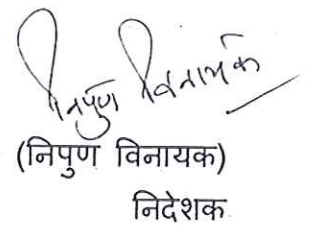 निपुण विनायक
(निपुण विनायक)
निदेशक